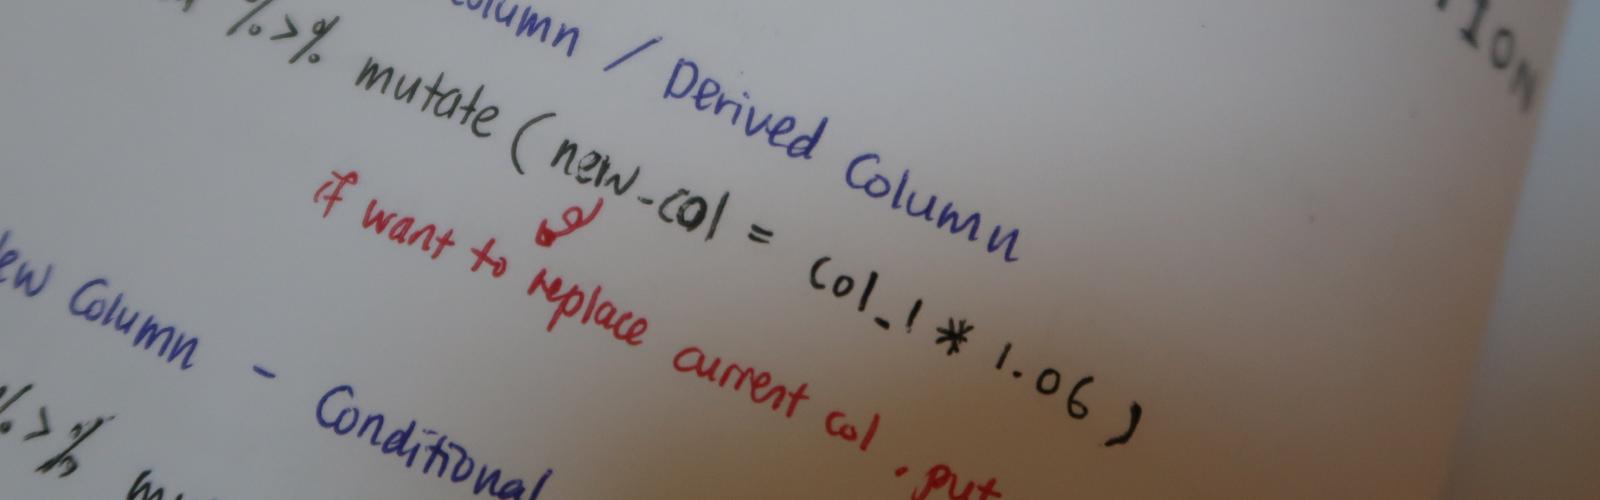 Column / Derived Column
%>% mutate (new_col = col_1 * 1.06)
if want to replace current col. put
Column - Conditional
%>%